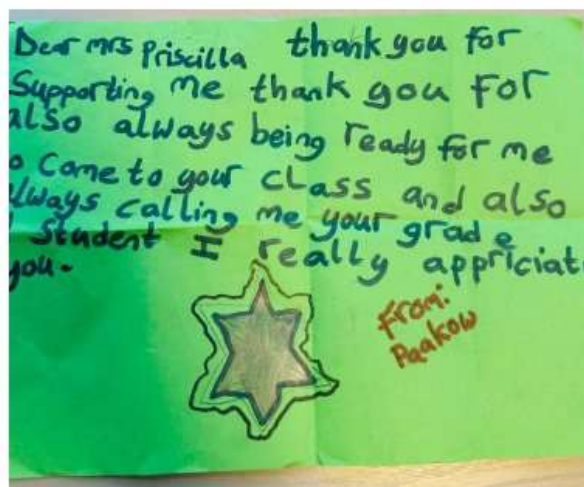 Dear mrs Priscilla thank you for
Supporting me thank you For
also always being ready for me
o come to your class and also
lways calling me your grade
student I really appriciat
you.
From:
Paakow